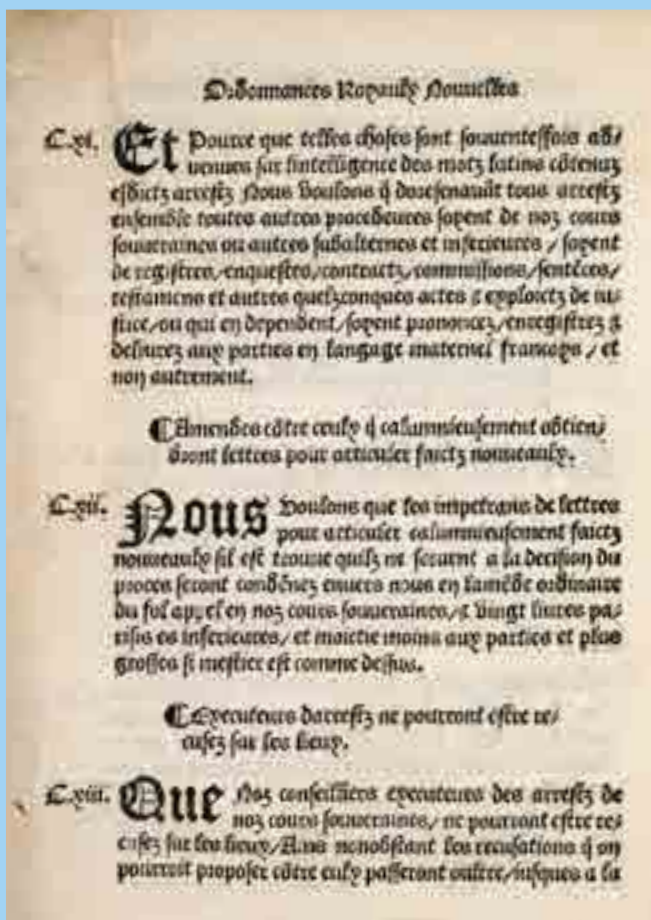 Ordonnances Royaulx Nouuelles
C.xi. Et Pource que telles choses sont souuenteffois ad/
uenues sur lintelligence des motz latins cõtenuz
esdictz arrestz Nous voulons q̃ doresenauãt tous arrestz
ensemble toutes autres procedeures soyent de noz cours
souueraines ou autres subalternes et inferieures / soyent
de registres/enquestes/contractz/commissions/sentẽces/
testamens et autres quelzconques actes & exploictz de iu/
stice/ou qui en dependent/soyent prononcez/enregistrez &
deliurez aux parties en langage maternel francoys / et
non autrement.
¶Amendes cõtre ceulx q̃ calumnieusement obtien/
dront lettres pour articuler faictz nouueaulx.
C.xii. Nous voulons que les impetrans de lettres
pour articuler calumnieusement faictz
nouueaulx sil est trouue quilz ne seruent a la decision du
proces seront condẽnez enuers nous en lamẽde ordinaire
du fol appel en noz cours souueraines/& vingt liures pa/
risis es inferieures/ et moictie moins aux parties et plus
grosses si mestier est comme dessus.
¶Executeurs darrestz ne pourront estre re/
cusez sur les lieux.
C.xiii. Que Noz conseilliers executeurs des arrestz de
noz cours souueraines/ ne pourront estre re/
cusez sur les lieux/Ains nonobstant les recusations q̃ on
pourroit proposer cõtre eulx passeront oultre/iusques a la